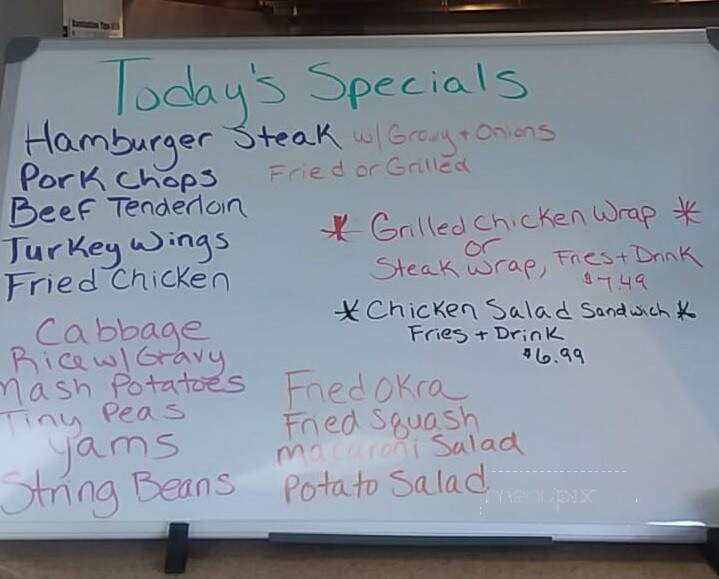 Today's Specials
Hamburger Steak w/ Gravy + Onions
Pork Chops Fried or Grilled
Beef Tenderloin
Turkey Wings
Fried Chicken
* Grilled Chicken Wrap *
or
Steak Wrap, Fries + Drink
$7.49
* Chicken Salad Sandwich *
Fries + Drink
$6.99
Cabbage
Rice w/ Gravy
Mash Potatoes
Tiny Peas
Yams
String Beans
Fried Okra
Fried Squash
Macaroni Salad
Potato Salad
menupix